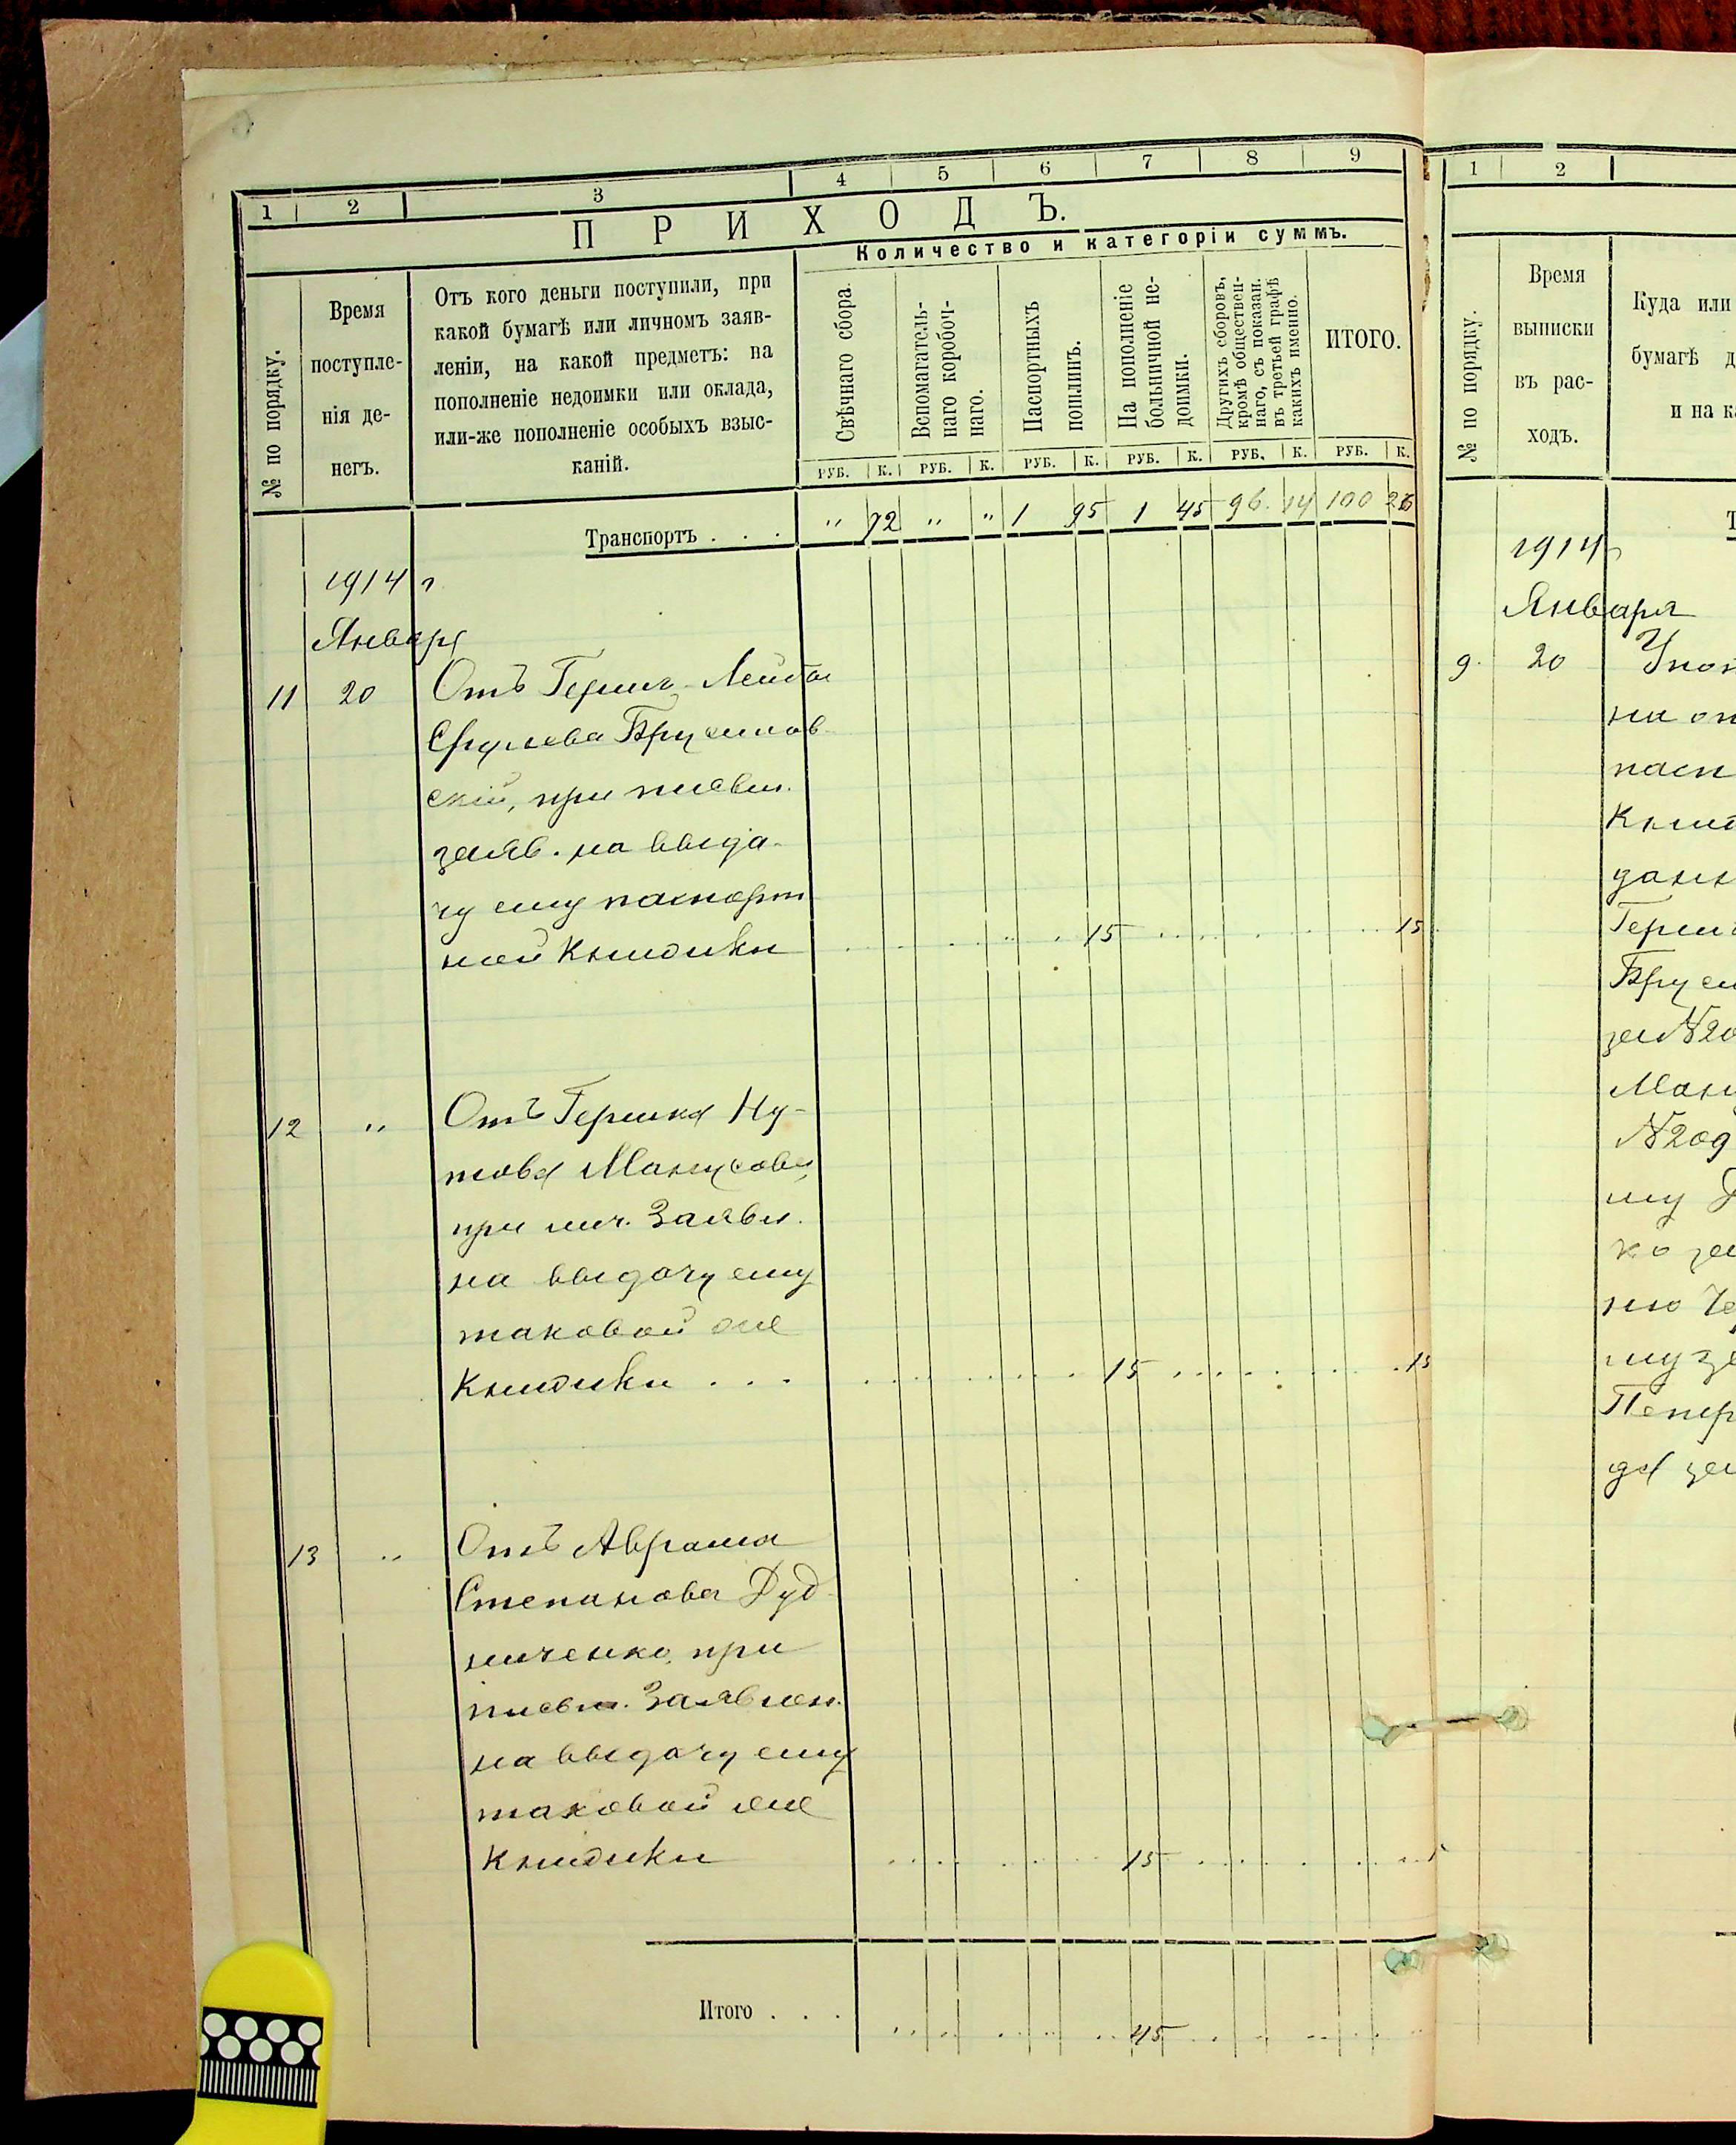 1 2 3 4 5 6 7 8 9
ПРИХОДЪ.
Количество и категоріи суммъ.
№ по порядку.
Время
поступле-
нія де-
негъ.
Отъ кого деньги поступили, при
какой бумагѣ или личномъ заяв-
леніи, на какой предметъ: на
пополненіе недоимки или оклада,
или-же пополненіе особыхъ взыс-
каній.
Свѣчнаго сбора.
Вспомагатель-
наго коробоч-
наго.
Паспортныхъ
пошлинъ.
На пополненіе
больничной не-
доимки.
Другихъ сборовъ,
кромѣ обществен-
наго, съ показан.
въ третьей графѣ
какихъ именно.
ИТОГО.
РУБ. К. РУБ. К. РУБ. К. РУБ. К. РУБ. К. РУБ. К.
Транспортъ . . . " 72 " " 1 95 1 45 96 14 100 26
1914 г
Января
11 20 Отъ Герша-Лейба
Сруллева Бруслов
скій, при письм.
заяв. на выда-
чу ему паспорт
ной книжки 15 15
12 " Отъ Гершка Ну-
това Манусова,
при лич. Заявл.
на выдачу ему
таковой же
книжки . . . 15 15
13 " Отъ Аврама
Степанова Дуд
ниченко, при
письм. Заявлен.
на выдачу ему
таковой же
книжки 15
Итого . . . 45
1 2
№ по порядку.
Время
выписки
въ рас-
ходъ.
Куда или
бумагѣ
и на
1914 г
Января
9. 20
на
Герш
№20
№209
му